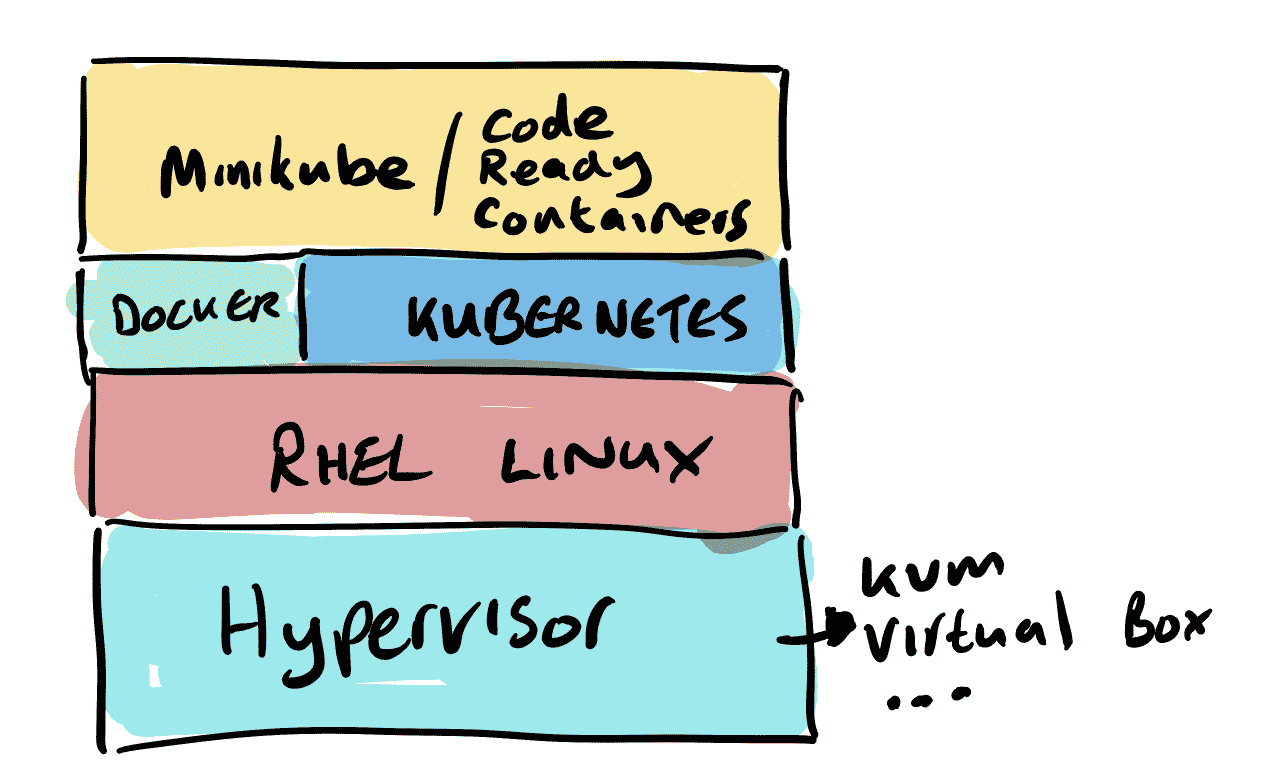 Minikube / Code
Ready
Containers
DOCKER
KUBERNETES
RHEL LINUX
Hypervisor
KVM
Virtual Box
...